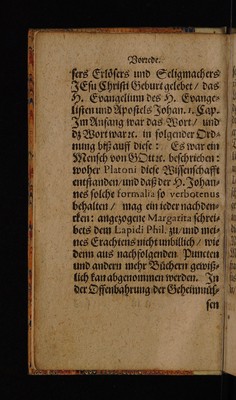 Vorrede.
sers Erlösers und Seligmachers
JEsu Christi Geburt gelebet / das
H. Evangelium des H. Evange-
listen und Apostels Johan. 1. Cap.
Im Anfang war das Wort / und
dz Wort war ꝛc. in folgender Ord-
nung biß auff diese: Es war ein
Mensch von GOtt ꝛc. beschrieben:
woher Platoni diese Wissenschafft
entstanden / und daß der H. Johan-
nes solche formalia so verbotenus
behalten / mag ein jeder nachden-
cken: angezogene Margarita schrei-
bets dem Lapidi Phil. zu / und mei-
nes Erachtens nicht unbillich / wie
denn aus nachfolgenden Puncten
und andern mehr Büchern gewiß-
lich kan abgenommen werden. In
der Offenbahrung der Geheimnüs-
sen